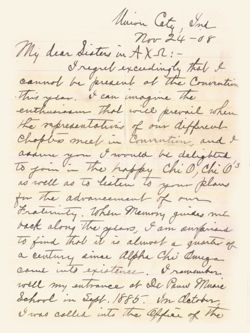 Union City, Ind
Nov 24-08
My dear Sisters in A X Ω:-
I regret exceedingly that I
cannot be present at the Convention
this year. I can imagine the
enthusiasm that will prevail when
the representations of our different
chapters meet in Convention, and I
assure you I would be delighted
to join in the happy Chi O, Chi O's
as well as to listen to your plans
for the advancement of our
Fraternity. When Memory guides me
back along the years, I am surprised
to find that it is almost a quarter of
a century since Alpha Chi Omega
came into existence. I remember
well my entrance at De Pauw Music
School in Sept. 1885. In October,
I was called into the Office of the